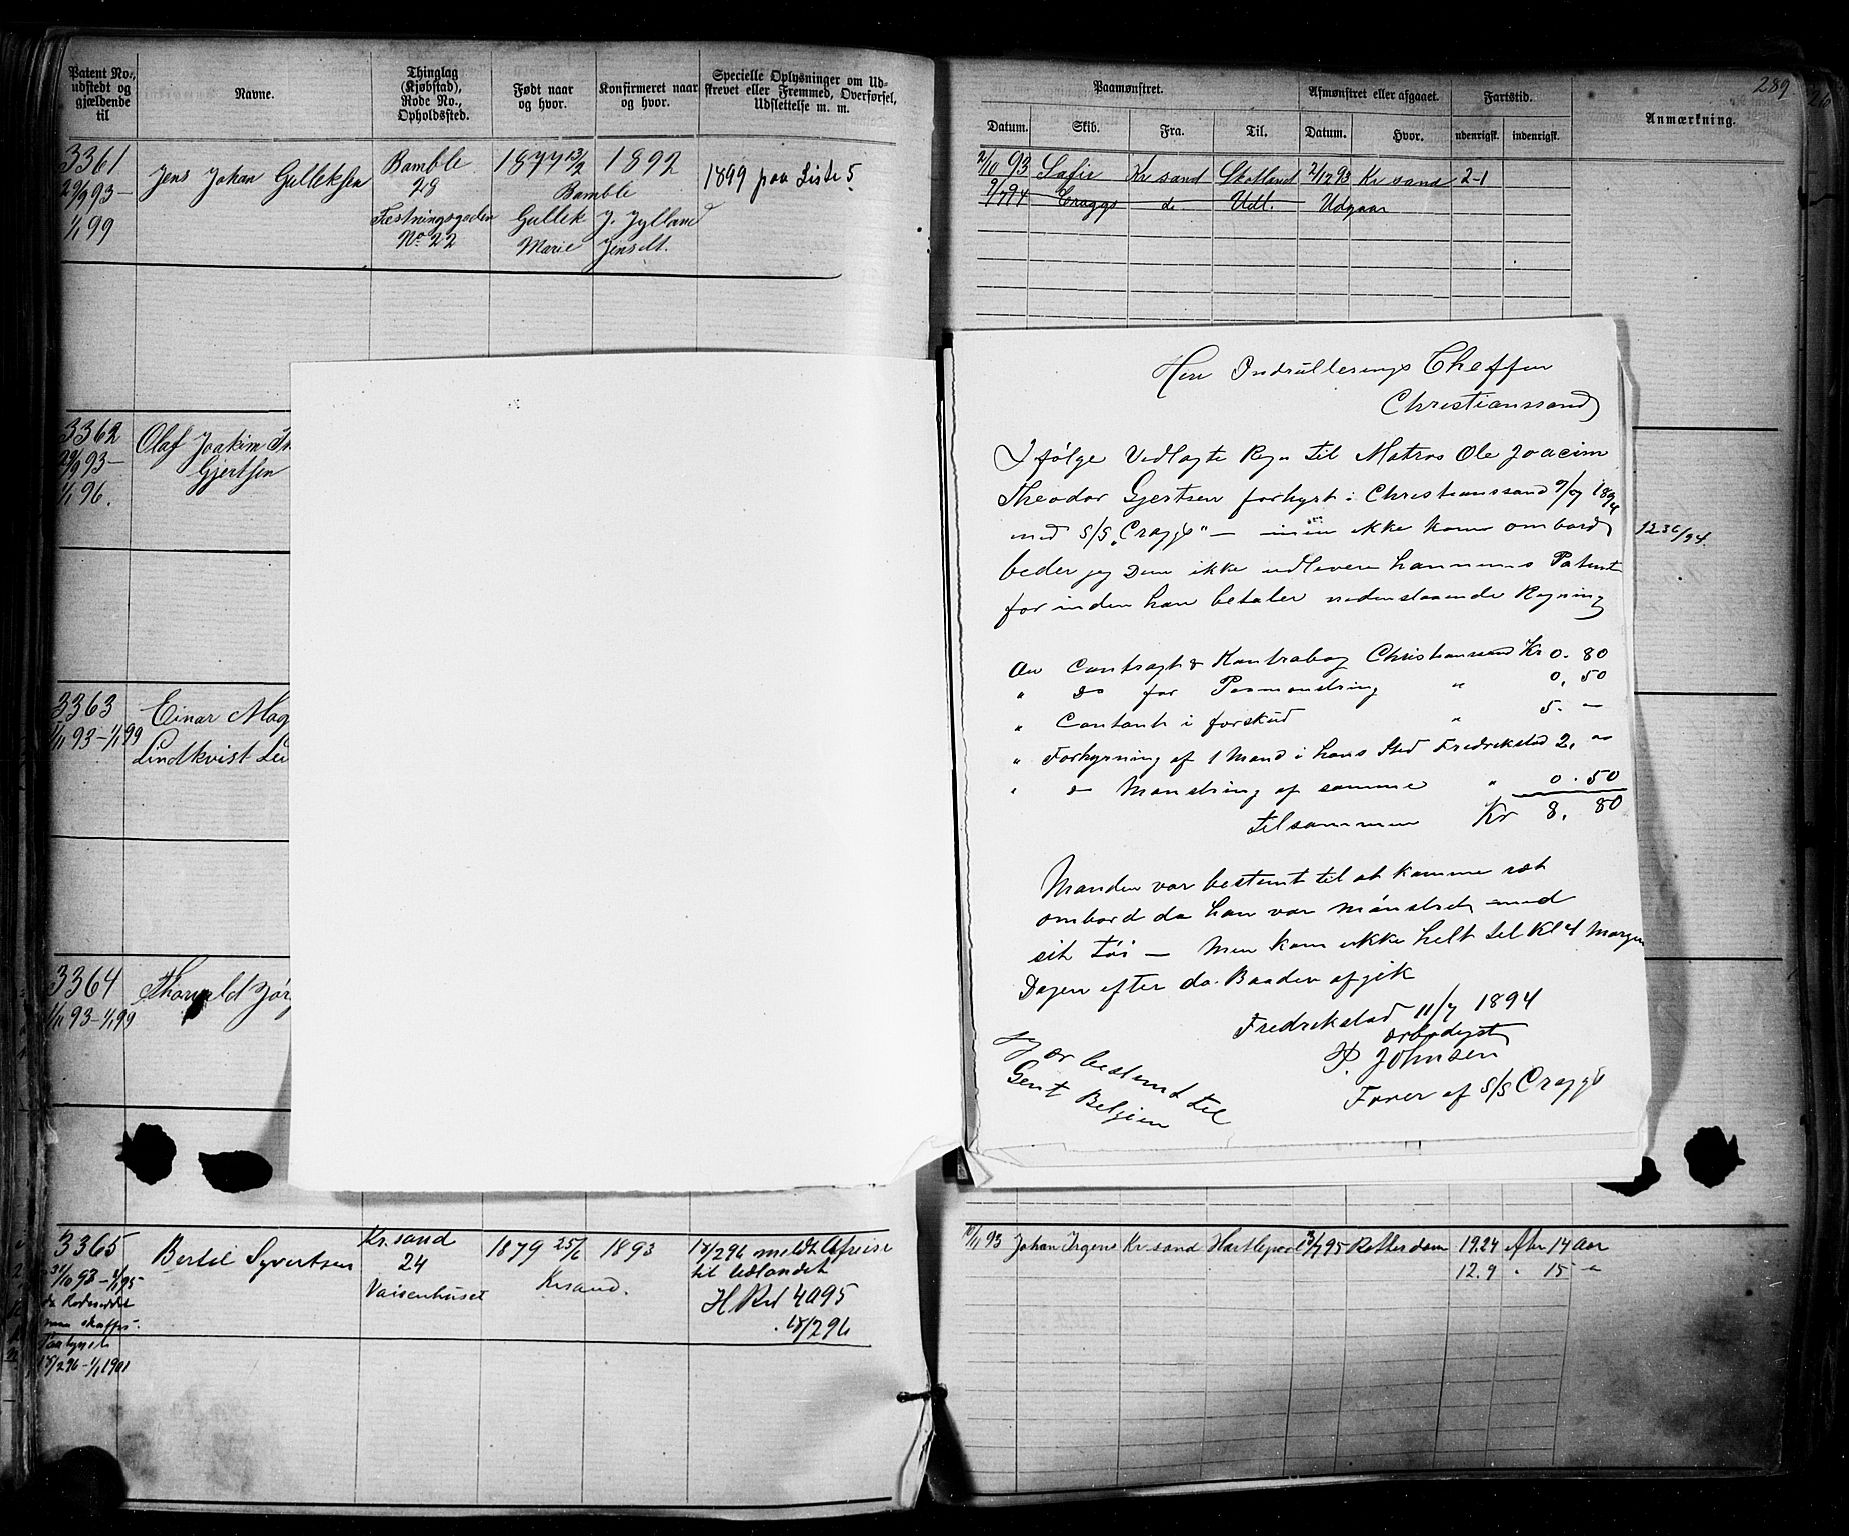 Patent No., udstedt og gjældende til
Navne.
Thinglag (Kjøbstad), Rode No., Opholdssted.
Født naar og hvor.
Konfirmeret naar og hvor.
Specielle Oplysninger om Udskrevet eller Fremmed, Overførsel, Udslettelse m. m.
3361
29/9 93 –
1/1 99
Jens Johan Gulleksen
Bamble
29
Festningsgaden
No 22
1877 13/2
1892
Bamble
Gullek J. Jylland
Marie Jensdt.
1899 paa Liste 5.
3362
29/9 93 –
1/1 96.
Olaf Joakim
Gjertsen
3363
1/11 93 – 1/1 99
Einar Mag
Lindkvist
3364
1/11 93 – 1/1 99
Thorvald Jør
3365
Bertel Syvertsen
Kr.sand
24
Vaisenhuset
1879 25/6
1893
Krsand.
15/2 96 meldt Afreise
til Udlandet
H Rul 4095
15/2 96
15/2 96 – 1/1 1901
289
Paamønstret.
Afmønstret eller afgaaet.
Fartstid.
Anmærkning.
Datum.
Skib.
Fra.
Til.
Datum.
Hvor.
udenrigsk.
indenrigsk.
2/10 93 Safir Kr sand Skotland 2/12 93 Kr sand 2-1
9/7 94 Craggs do Udl. Udgaar
Herr Indrullerings Cheffen
Christianssand
I følge Vedlagte Regn til Matros Ole Joacim
Theodor Gjertsen forhyrt i Christianssand 9/7 1894
med S/S „Craggs" – men ikke kom ombord
beder jeg Dem ikke udlevere hannems Patent
forinden han betaler nedenstaaende Regning
1236/94.
An Contragt & Kontrabog Christianssand Kr 0. 80
" do for Paamønstring " 0. 50
" Contant i forskud " 5. –
" Forhyrning af 1 Mand i hans Sted Fredrikstad 2. –
" do Mønstring af samme " 0. 50
tilsammen Kr 8. 80
Manden var bestemt til at komme ret
ombord da han var mønstret med
sit tøi – Men kom ikke helt til Kl 4 Morgen
Dagen efter da Baaden afgik
Fredrikstad 11/7 1894
ærbødigst
P. Johnsen
Fører af S/S Craggs
Jeg er bestemt til
Gent Belgien
10/11 93 Johan Irgens Kr.sand Hartlepool 13/7 95 Rotterdam 19.24 Afr 14 Aar
12.9 " 15 "